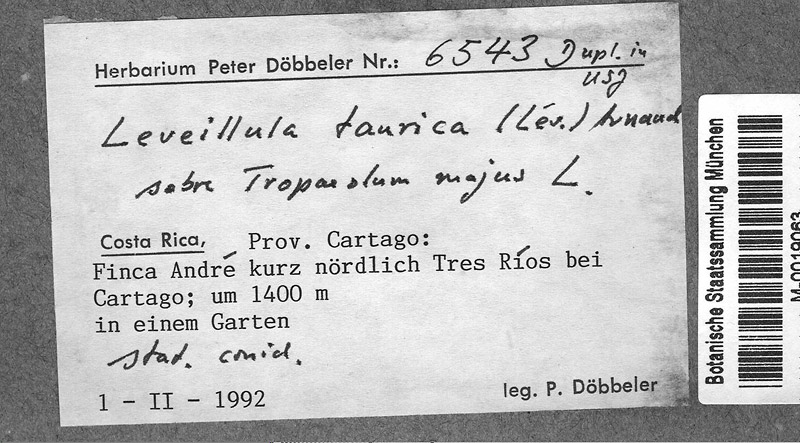 Herbarium Peter Döbbeler Nr.: 6543 Dupl. in
usj
Leveillula taurica (Lév.) Arnaud
sobre Tropaeolum majus L.
Costa Rica, Prov. Cartago:
Finca André kurz nördlich Tres Ríos bei
Cartago; um 1400 m
in einem Garten
stad. conid.
1 - II - 1992
leg. P. Döbbeler
Botanische Staatssammlung München
M-0019063